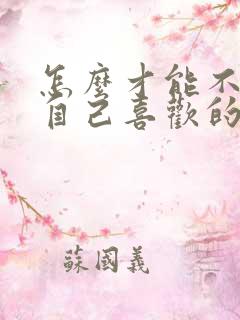 怎麼才能不
自己喜歡的
蘇國義